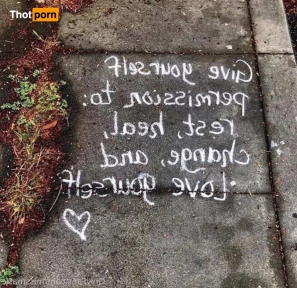 Thotporn
Give yourself
permission to:
rest, heal,
change, and,
Love yourself